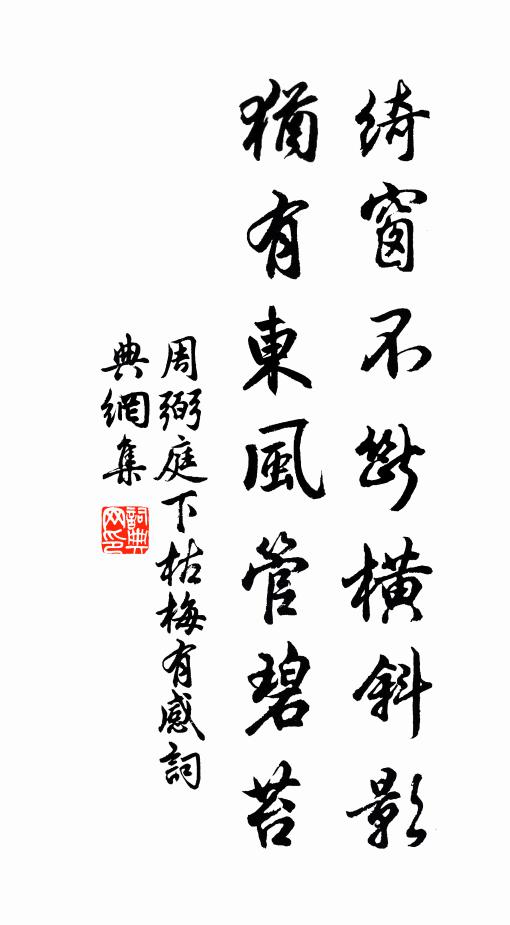 綺窗不斷橫斜影
猶有東風管碧苔
周弼庭下枯梅有感詞
典網集
詞典
网印